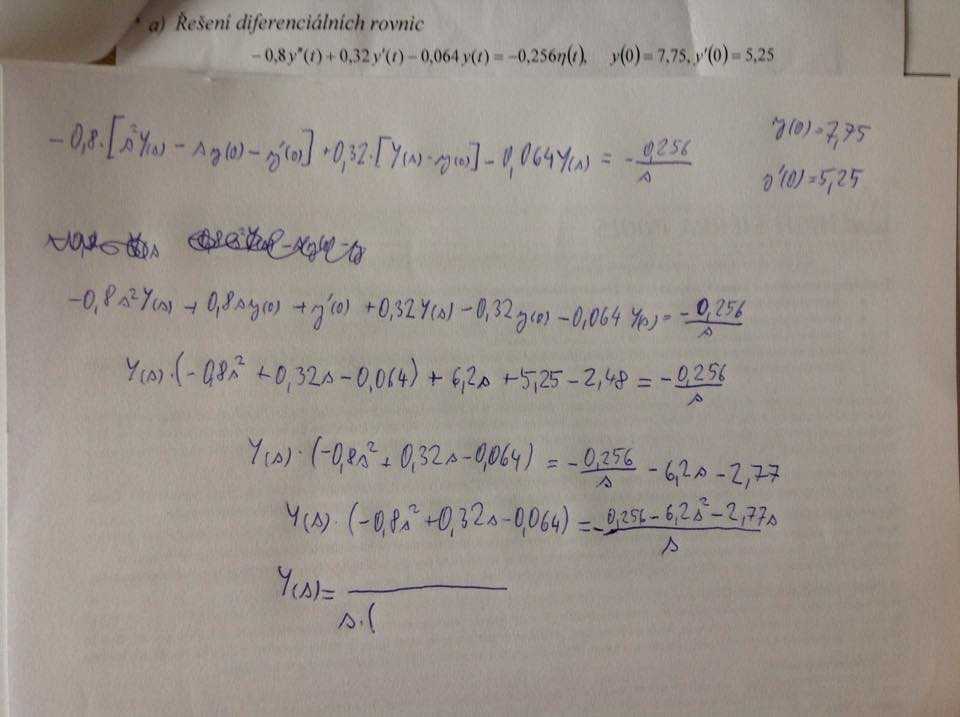 a) Řešení diferenciálních rovnic
− 0,8 y"(t) + 0,32 y'(t) − 0,064 y(t) = −0,256η(t), y(0) = 7,75, y'(0) = 5,25
−0,8·[s²Y(s) − s y(0) − y'(0)] + 0,32·[Y(s) − y(0)] − 0,064Y(s) = −0,256/s
y(0)=7,75
y'(0)=5,25
−0,8s²Y(s) + 0,8sy(0) + y'(0) + 0,32Y(s) − 0,32y(0) − 0,064 Y(s) = −0,256/s
Y(s)·(−0,8s² + 0,32s − 0,064) + 6,2s + 5,25 − 2,48 = −0,256/s
Y(s)·(−0,8s² + 0,32s − 0,064) = −0,256/s − 6,2s − 2,77
Y(s)·(−0,8s² + 0,32s − 0,064) = −0,256 − 6,2s² − 2,77s/s
Y(s) =
s·(